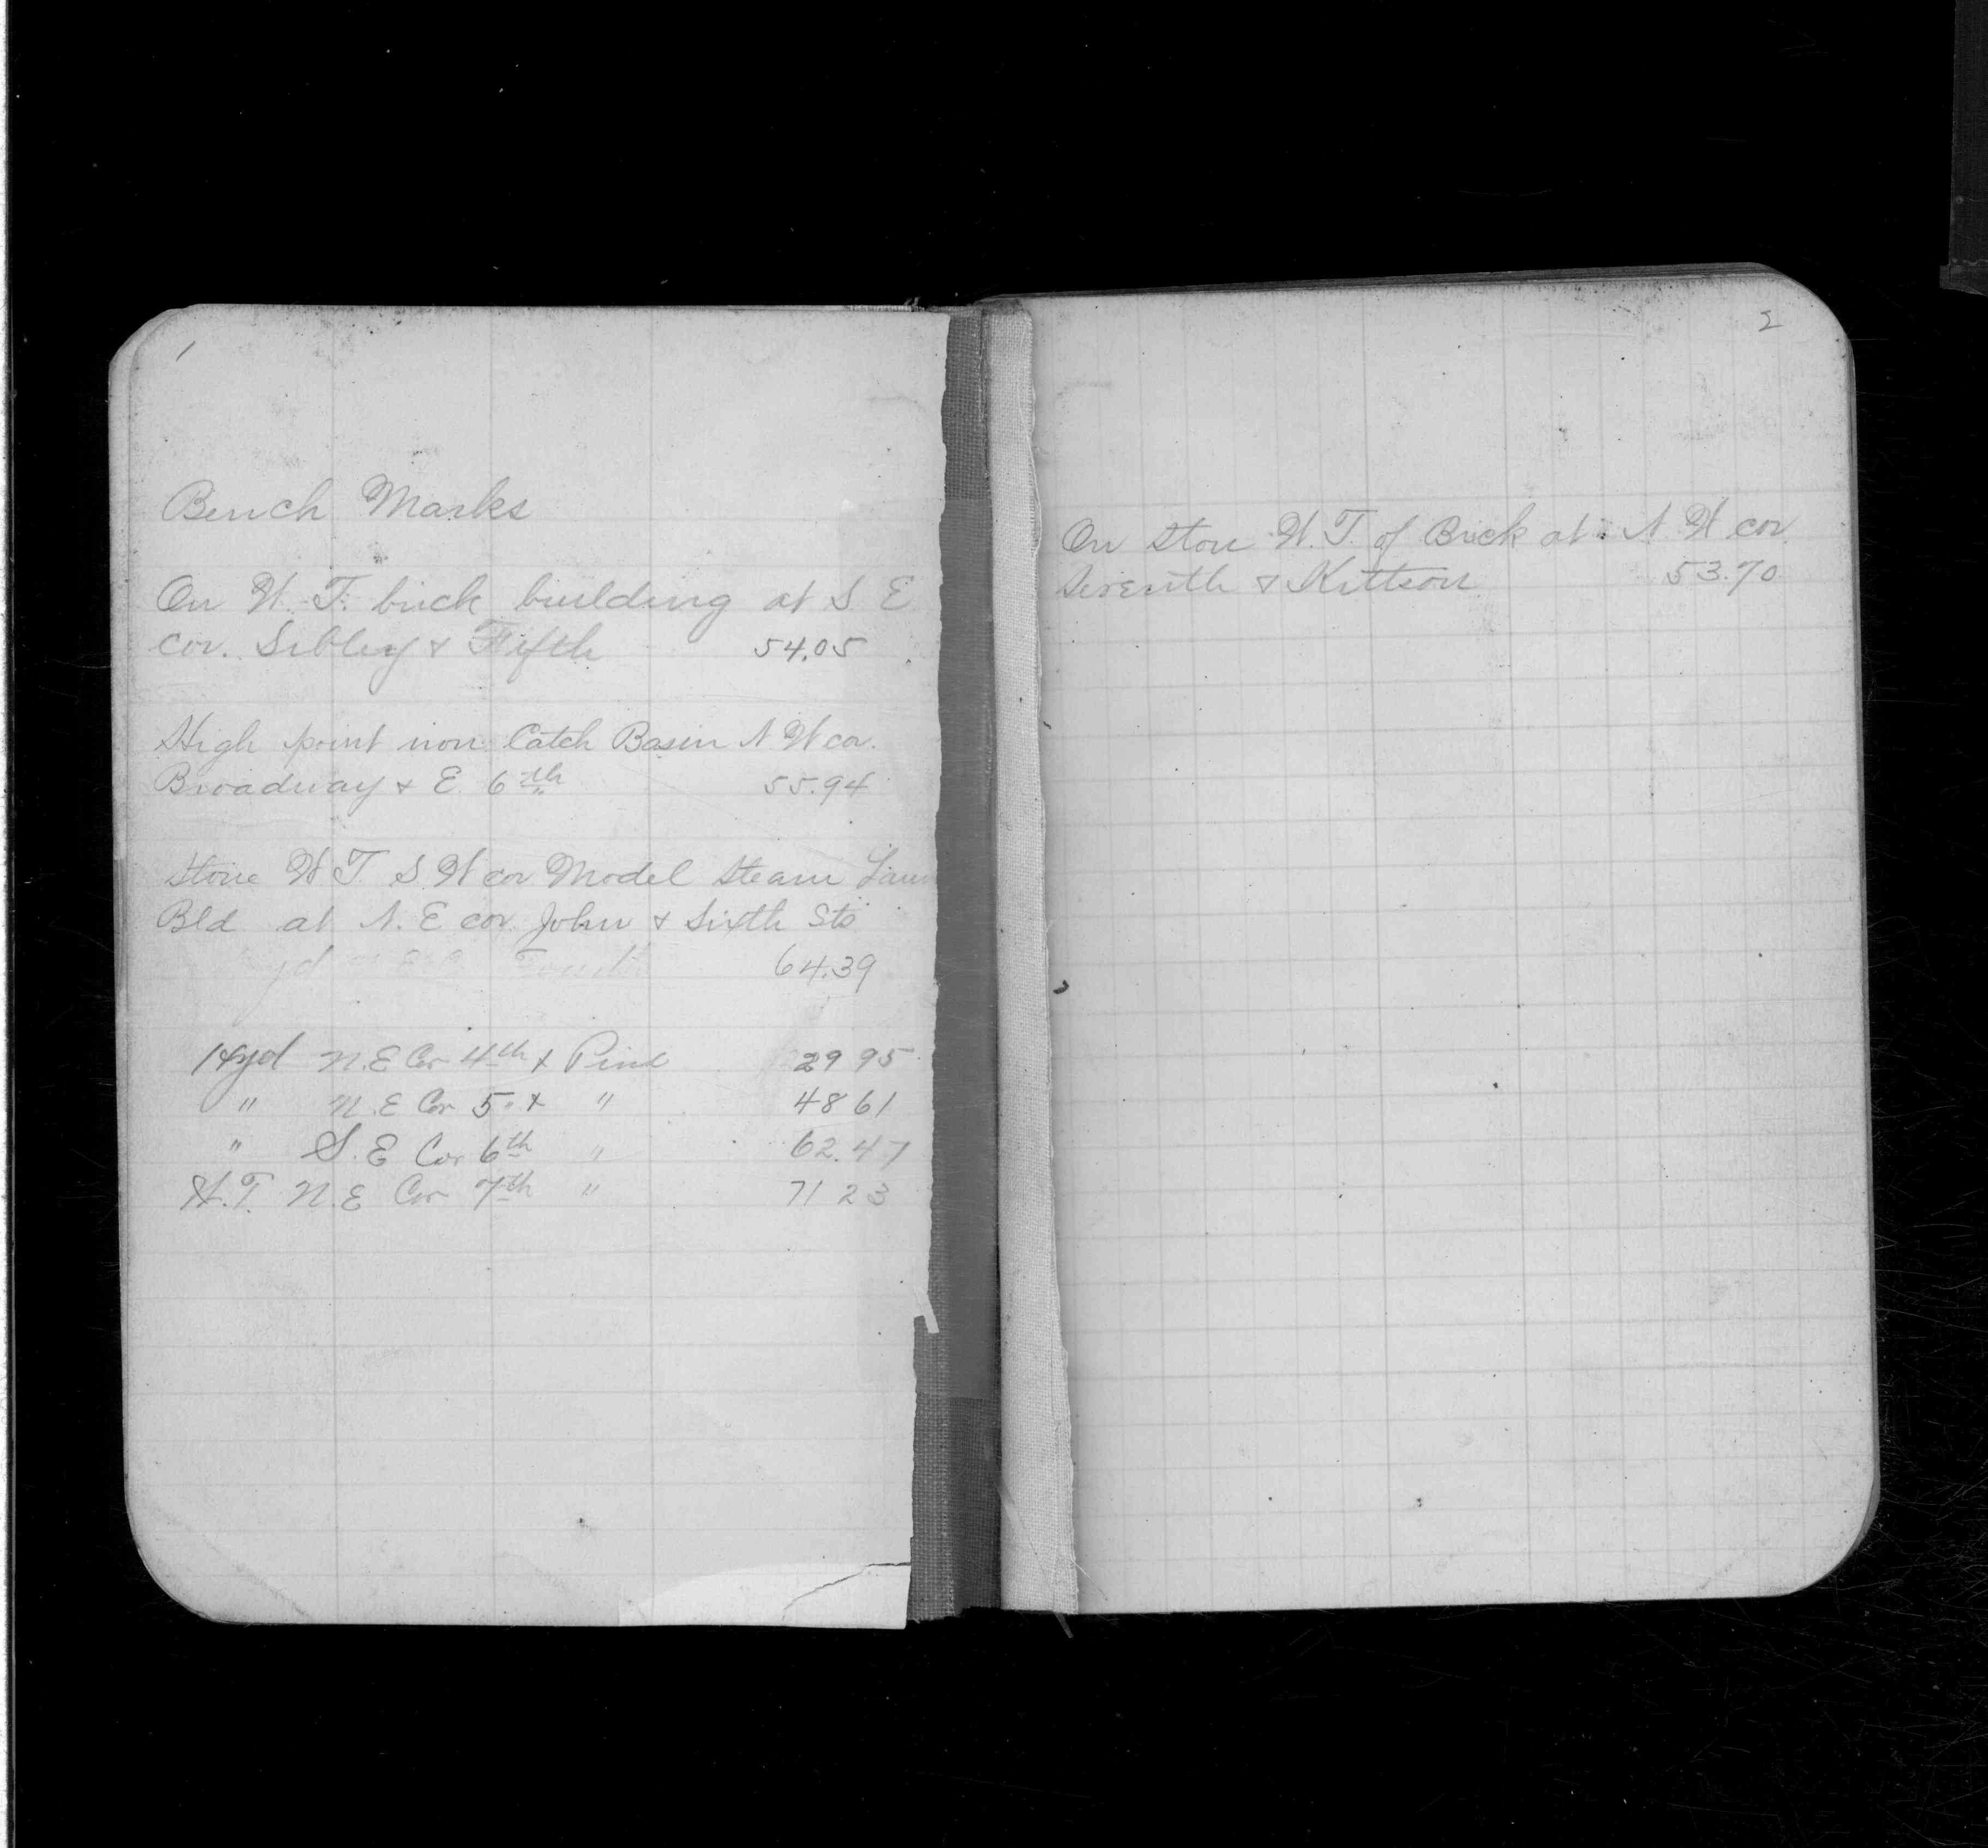 1
Bench Marks
On W. T. brick building at S E
cor. Sibley & Fifth 54.05
High point iron Catch Basin N W cor.
Broadway & E. 6th 55.94
Stone W T S W cor Model Steam Laun
Bld at N. E cor. John & Sixth Sts
64.39
Hyd N.E Cor 4th & Pine 29 95
" N.E Cor 5 & " 48 61
" S.E Cor 6th " 62.47
W.T. N.E Cor 7th " 71 23
2
On Stone W. T. of Brick at N. W cor.
Seventh & Kittson 53.70